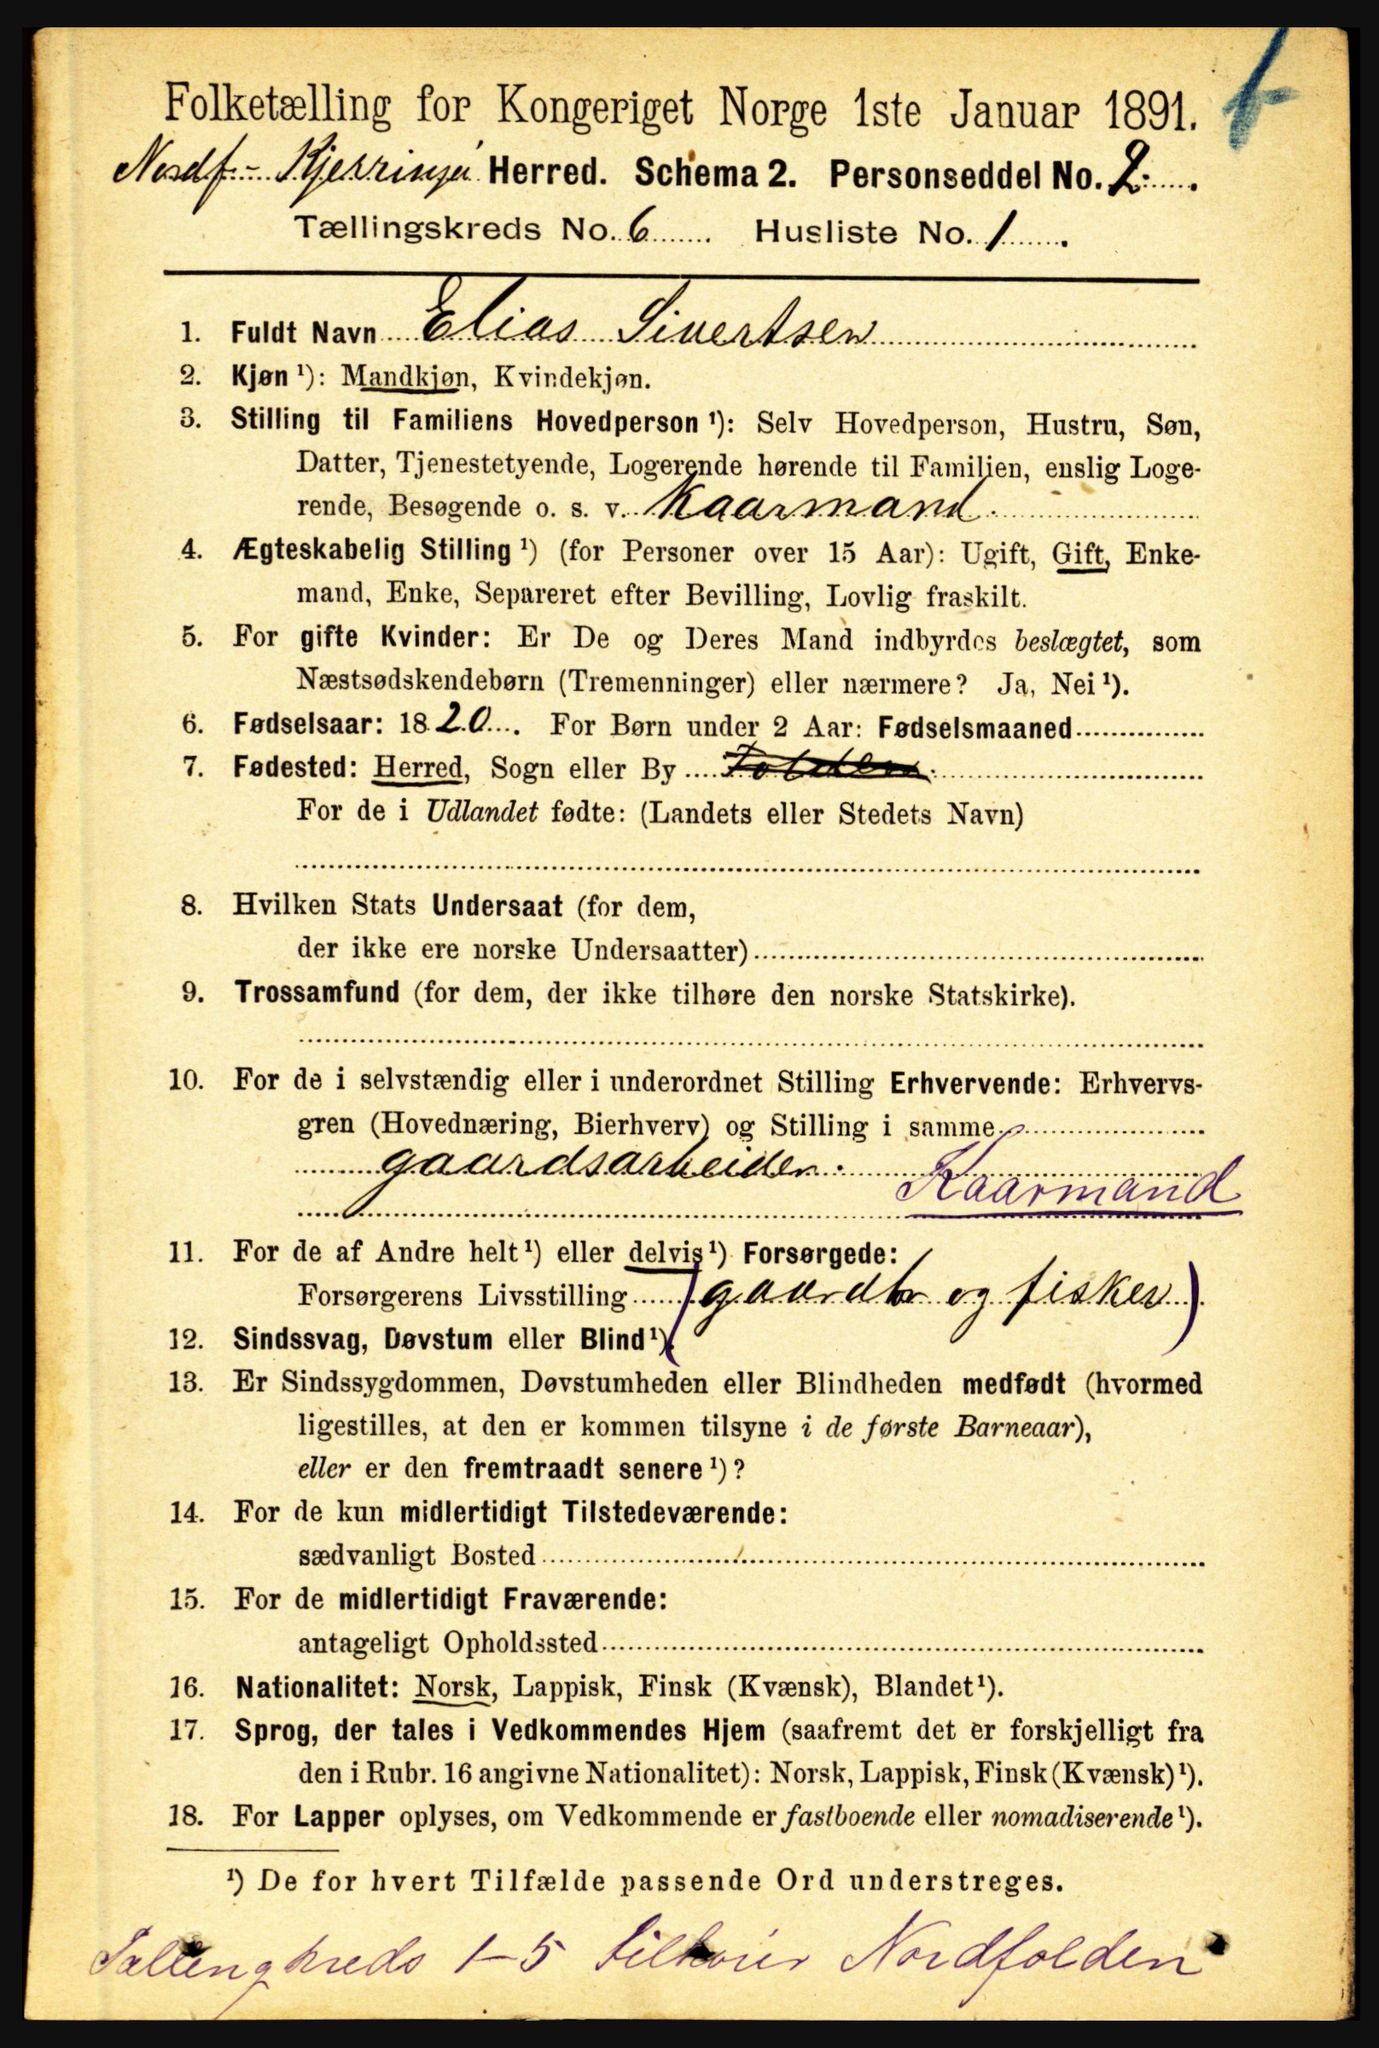 Folketælling for Kongeriget Norge 1ste Januar 1891.
Nordf.- Kjerringø Herred. Schema 2. Personseddel No. 2.
Tællingskreds No. 6 Husliste No. 1
1. Fuldt Navn Elias Sivertsen
2. Kjøn ¹): Mandkjøn, Kvindekjøn.
3. Stilling til Familiens Hovedperson ¹): Selv Hovedperson, Hustru, Søn,
Datter, Tjenestetyende, Logerende hørende til Familien, enslig Loge-
rende, Besøgende o. s. v. Kaarmand.
4. Ægteskabelig Stilling ¹) (for Personer over 15 Aar): Ugift, Gift, Enke-
mand, Enke, Separeret efter Bevilling, Lovlig fraskilt.
5. For gifte Kvinder: Er De og Deres Mand indbyrdes beslægtet, som
Næstsødskendebørn (Tremenninger) eller nærmere? Ja, Nei ¹).
6. Fødselsaar: 1820. For Børn under 2 Aar: Fødselsmaaned
7. Fødested: Herred, Sogn eller By Folden.
For de i Udlandet fødte: (Landets eller Stedets Navn)
8. Hvilken Stats Undersaat (for dem,
der ikke ere norske Undersaatter)
9. Trossamfund (for dem, der ikke tilhøre den norske Statskirke).
10. For de i selvstændig eller i underordnet Stilling Erhvervende: Erhvervs-
gren (Hovednæring, Bierhverv) og Stilling i samme
gaardsarbeider.
Kaarmand
11. For de af Andre helt ¹) eller delvis ¹) Forsørgede:
Forsørgerens Livsstilling (gaardbr og fisker)
12. Sindssvag, Døvstum eller Blind ¹).
13. Er Sindssygdommen, Døvstumheden eller Blindheden medfødt (hvormed
ligestilles, at den er kommen tilsyne i de første Barneaar),
eller er den fremtraadt senere ¹)?
14. For de kun midlertidigt Tilstedeværende:
sædvanligt Bosted
15. For de midlertidigt Fraværende:
antageligt Opholdssted
16. Nationalitet: Norsk, Lappisk, Finsk (Kvænsk), Blandet ¹).
17. Sprog, der tales i Vedkommendes Hjem (saafremt det er forskjelligt fra
den i Rubr. 16 angivne Nationalitet): Norsk, Lappisk, Finsk (Kvænsk) ¹).
18. For Lapper oplyses, om Vedkommende er fastboende eller nomadiserende ¹).
¹) De for hvert Tilfælde passende Ord understreges.
1-5 Nordfolden